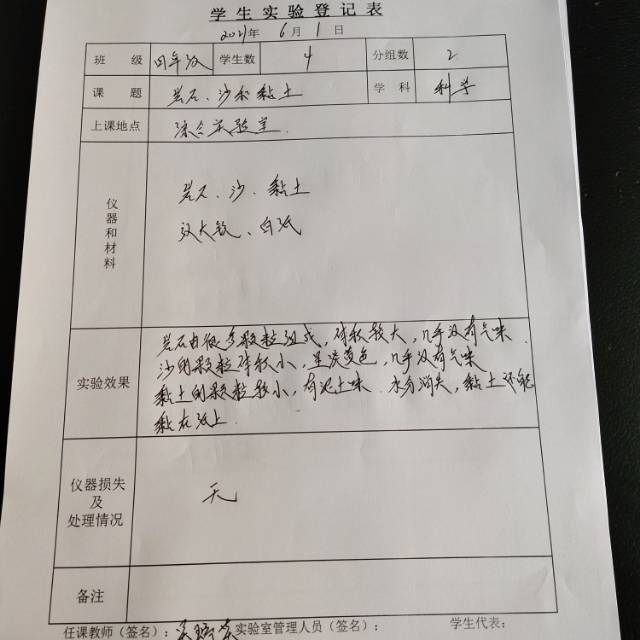 学生实验登记表
2021年 6月 1日
班 级 四年级 学生数 4 分组数 2
课 题 岩石、沙和黏土 学 科 科学
上课地点 综合实验室
仪器和材料
岩石、沙、黏土
放大镜、白纸
实验效果
岩石由很多颗粒组成，体积较大，几乎没有气味
沙的颗粒体积小，呈淡黄色，几乎没有气味
黏土的颗粒较小，有泥土味 水分消失，黏土还能
黏在纸上
仪器损失及处理情况
无
备注
任课教师（签名）： 实验室管理人员（签名）： 学生代表：